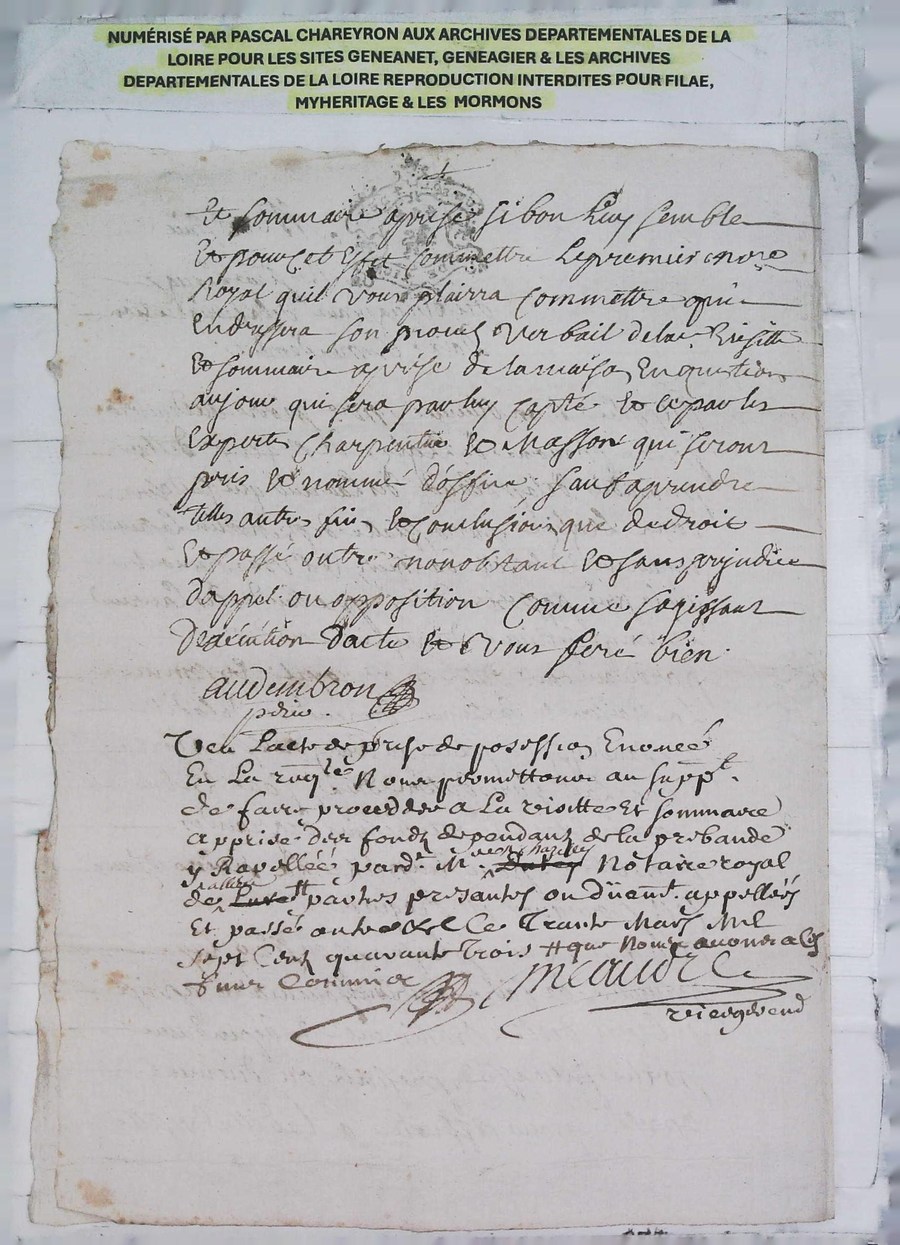 NUMÉRISÉ PAR PASCAL CHAREYRON AUX ARCHIVES DEPARTEMENTALES DE LA
LOIRE POUR LES SITES GENEANET, GENEAGIER & LES ARCHIVES
DEPARTEMENTALES DE LA LOIRE REPRODUCTION INTERDITES POUR FILAE,
MYHERITAGE & LES MORMONS
Et sommaire aprise si bon luy semble
Et pour cet Effet commettre le premier
Royal quil vous plairra commettre qui
En dressera son proces verbail de lad.
Et sommaire aprise de la maison En question
au jour qui sera par luy Et ce par les
Experts Charpentie Et Masson qui seront
pris Et nommé d'office sauf a prendre
telles autres fins Et Conclusions que de droit
Et passé outre nonobstant Et sans prejudice
d'appel ou opposition comme sagissant
Dexécution dacte Et vous feré bien.
audembron
Veu Lacte de prise de posession Enoncé
En La reqte Nous permettons au suppt.
de faire proceder a La visitte Et sommaire
apprise des fonds dependants de la prebande
y Rapellée par Notaire royal
de partyes presantes ou düemt. appellées
Et passé outre &c Ce Trante Mars Mil
sept Cent quarante Trois # que Nous avons a Ces
fins Commis
Meaudre
vicegerend